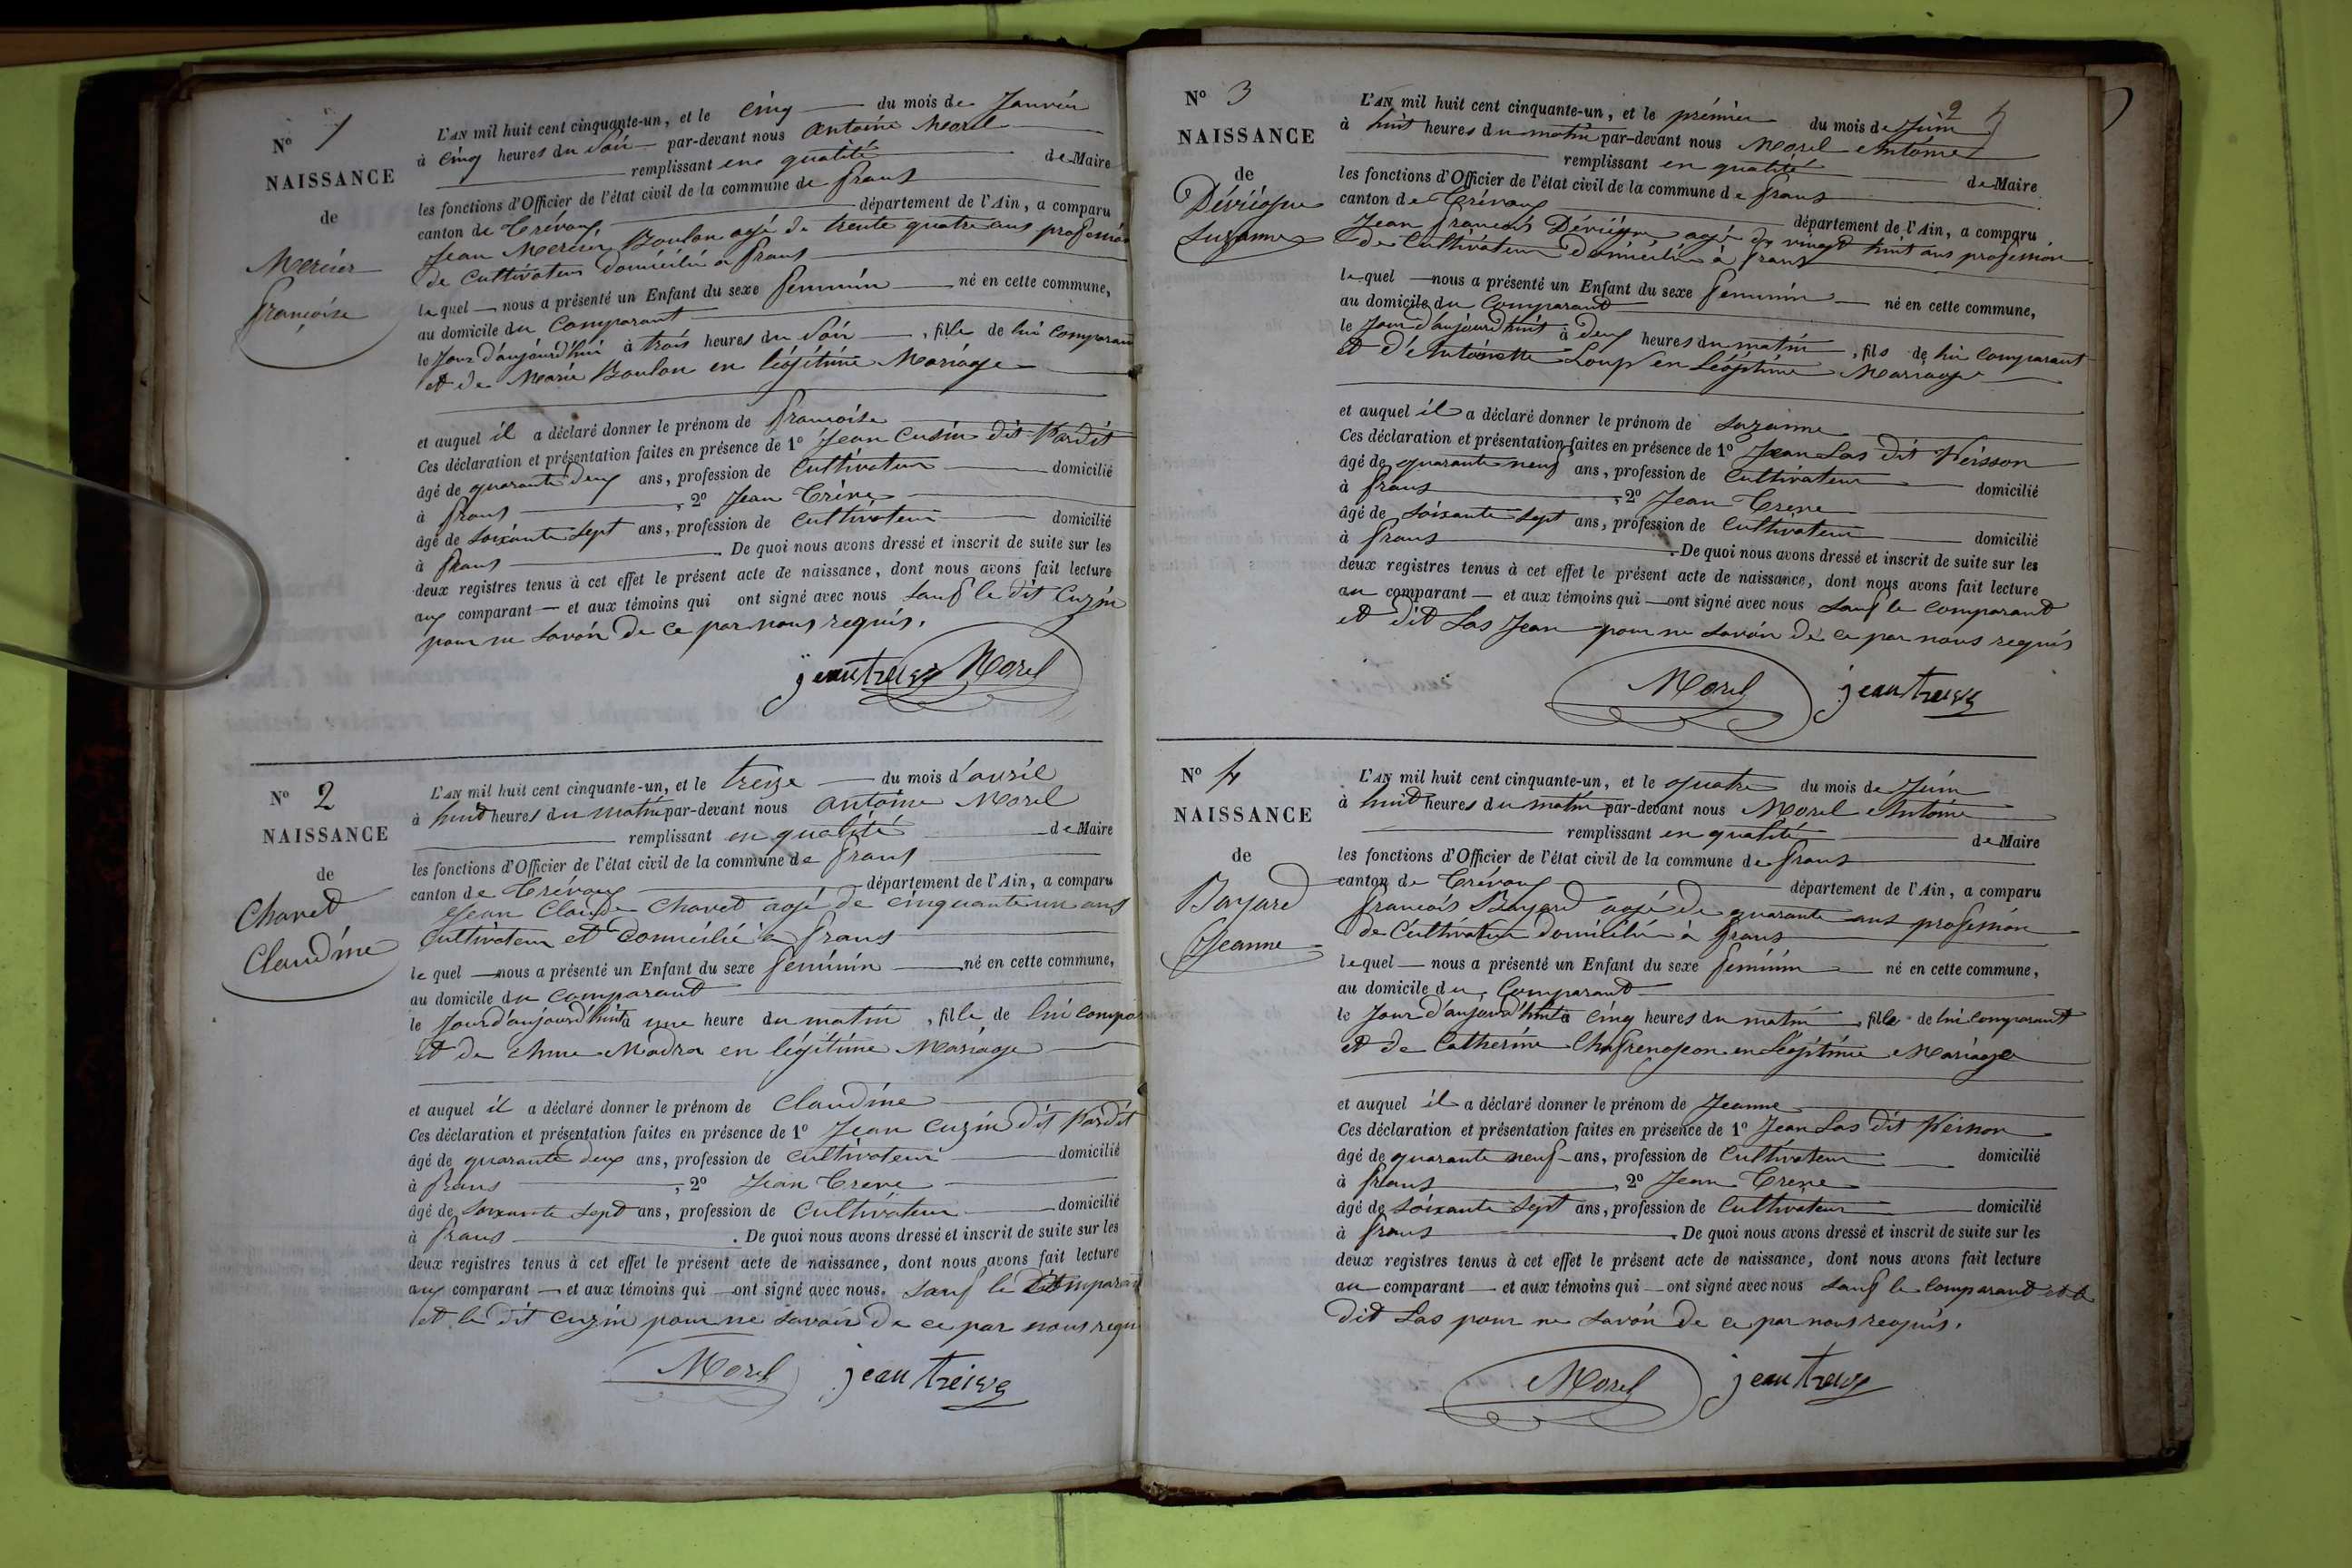 N° 1
NAISSANCE
de
Mercier
françoise
L'AN mil huit cent cinquante-un, et le cinq du mois de Janvier
à cinq heures du soir par-devant nous antoine Morel
remplissant en qualité de Maire
les fonctions d'Officier de l'état civil de la commune de frans
canton de Trévoux département de l'Ain, a comparu
Jean Mercier Boulon agé de trente quatre ans profession
de cultivateur domicilié a frans
lequel nous a présenté un Enfant du sexe feminin né en cette commune,
au domicile du comparant
le Jour d'aujourd'hui à trois heures du soir, fille de lui comparant
et de Marie Boulon en légitime Mariage
et auquel il a déclaré donner le prénom de françoise
Ces déclaration et présentation faites en présence de 1° Jean Cusin dit
âgé de quarante deux ans, profession de cultivateur domicilié
à frans, 2° Jean Trève
âgé de soixante sept ans, profession de cultivateur domicilié
à frans. De quoi nous avons dressé et inscrit de suite sur les
deux registres tenus à cet effet le présent acte de naissance, dont nous avons fait lecture
aux comparant et aux témoins qui ont signé avec nous sauf le dit Cuzin
pour ne savoir de ce par nous requis.
jean treive Morel
N° 2
NAISSANCE
de
Chavet
Claudine
L'AN mil huit cent cinquante-un, et le treize du mois d'avril
à huit heures du matin par-devant nous antoine Morel
remplissant en qualité de Maire
les fonctions d'Officier de l'état civil de la commune de frans
canton de Trévoux département de l'Ain, a comparu
Jean Claude Chavet agé de cinquante un ans
cultivateur et domicilié a frans
lequel nous a présenté un Enfant du sexe féminin né en cette commune,
au domicile du comparant
le Jour d'aujourd'hui à une heure du matin, fille de lui compar
et de Anne Madra en légitime Mariage
et auquel il a déclaré donner le prénom de Claudine
Ces déclaration et présentation faites en présence de 1° Jean Cuzin dit
âgé de quarante deux ans, profession de cultivateur domicilié
à frans, 2° Jean Treve
âgé de soixante sept ans, profession de cultivateur domicilié
à frans. De quoi nous avons dressé et inscrit de suite sur les
deux registres tenus à cet effet le présent acte de naissance, dont nous avons fait lecture
aux comparant et aux témoins qui ont signé avec nous. sauf le
et le dit cuzin pour ne savoir de ce par nous requi
Morel jean treive
N° 3
NAISSANCE
de
Suzanne
2
L'AN mil huit cent cinquante-un, et le prémier du mois de Juin
à huit heures du matin par-devant nous Morel Antoine
remplissant en qualité de Maire
les fonctions d'Officier de l'état civil de la commune de frans
canton de Trévoux département de l'Ain, a comparu
Jean francois agé de vingt huit ans profession
de Cultivateur domicilié à frans
lequel nous a présenté un Enfant du sexe feminin né en cette commune,
au domicile du Comparant
le Jour d'aujourd'huit à deux heures du matin, fils de lui comparant
et d'Antoinette Loup en Légitime Marriage
et auquel il a déclaré donner le prénom de Suzanne
Ces déclaration et présentation faites en présence de 1° Jean Las dit
âgé de quarante neuf ans, profession de Cultivateur domicilié
à frans, 2° Jean Treve
âgé de soixante sept ans, profession de Cultivateur domicilié
à frans. De quoi nous avons dressé et inscrit de suite sur les
deux registres tenus à cet effet le présent acte de naissance, dont nous avons fait lecture
au comparant et aux témoins qui ont signé avec nous sauf le comparant
et dit Las Jean pour ne savoir de ce par nous requis
Morel jean treive
N° 4
NAISSANCE
de
Bayard
Jeanne
L'AN mil huit cent cinquante-un, et le quatre du mois de Juin
à huit heures du matin par-devant nous Morel Antoine
remplissant en qualité de Maire
les fonctions d'Officier de l'état civil de la commune de frans
canton de Trévoux département de l'Ain, a comparu
francois Bayard agé de quarante ans profession
de Cultivateur domicilié à frans
lequel nous a présenté un Enfant du sexe feminin né en cette commune,
au domicile du Comparant
le Jour d'aujourd'huit à cinq heures du matin, fille de lui comparant
et de Catherine en Légitime Mariage
et auquel il a déclaré donner le prénom de Jeanne
Ces déclaration et présentation faites en présence de 1° Jean Las dit
âgé de quarante neuf ans, profession de Cultivateur domicilié
à frans, 2° Jean Treve
âgé de soixante sept ans, profession de Cultivateur domicilié
à frans. De quoi nous avons dressé et inscrit de suite sur les
deux registres tenus à cet effet le présent acte de naissance, dont nous avons fait lecture
au comparant et aux témoins qui ont signé avec nous sauf le comparant et le
dit Las pour ne savoir de ce par nous requis.
Morel jean treive